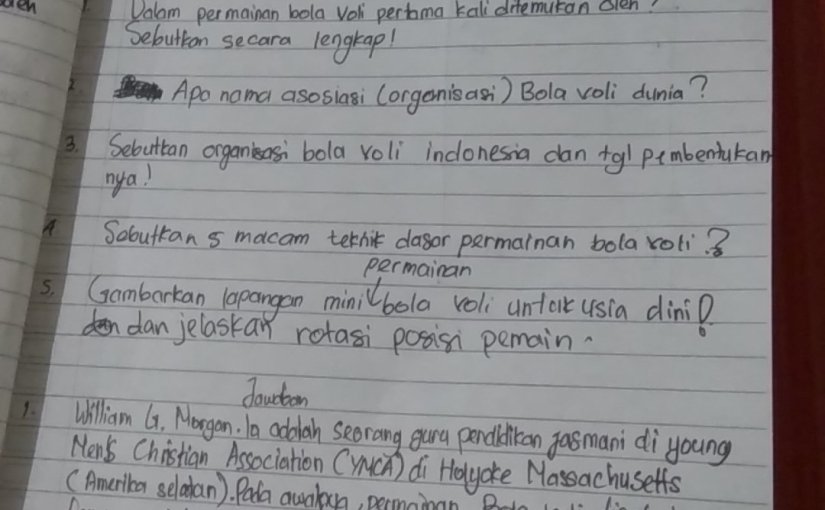 1. Dalam permainan bola voli pertama kali ditemukan oleh ?
Sebutkan secara lengkap!
2. Apa nama asosiasi (organisasi) Bola voli dunia?
3. Sebutkan organisasi bola voli indonesia dan tgl pembentukan
nya!
4 Sebutkan 5 macam tekhik dasar permainan bola voli ?
permainan
5. Gambarkan lapangan mini bola voli untuk usia dini?
dan jelaskan rotasi posisi pemain.
Jawaban
1. William G. Morgan. Ia adalah seorang guru pendidikan jasmani di young
Men's Christian Association (YMCA) di Holyoke Massachusetts
(Amerika selatan). Pada awalnya, permainan Bola